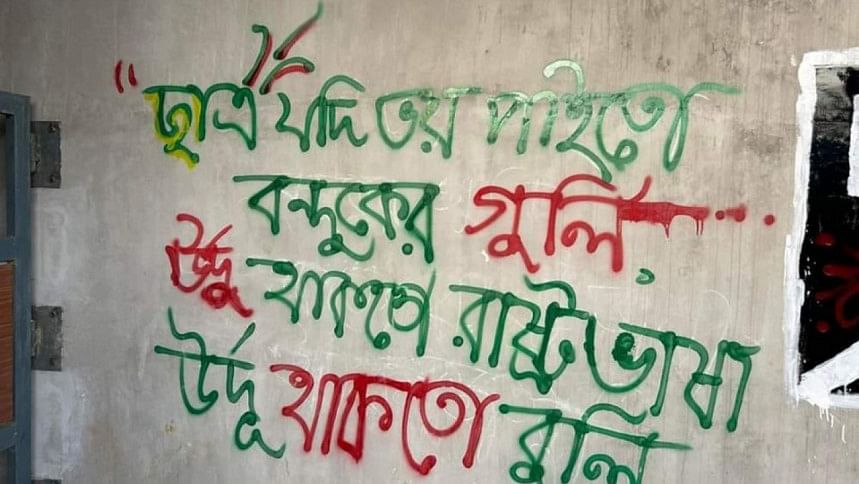 "ছাত্র যদি ভয় পাইতো
বন্দুকের গুলি
উর্দু থাকতো রাষ্ট্রভাষা
উর্দু থাকতো বুলি